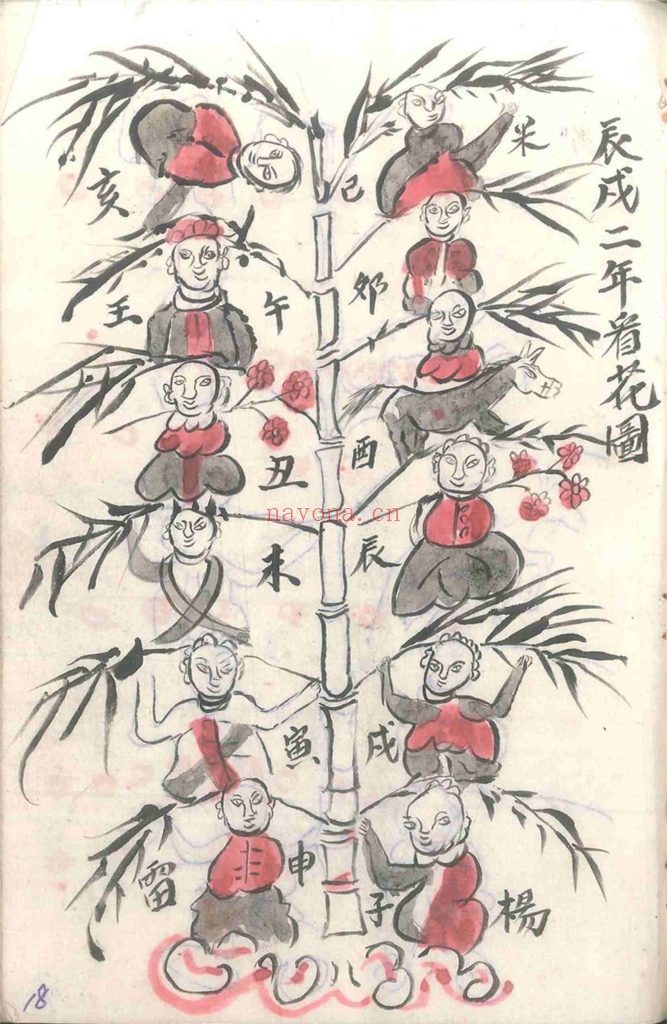 辰戌二年看花圖
米
巳
亥
卯
午
王
酉
丑
辰
未
戌
寅
申
子
雷
楊
nayona.cn
18